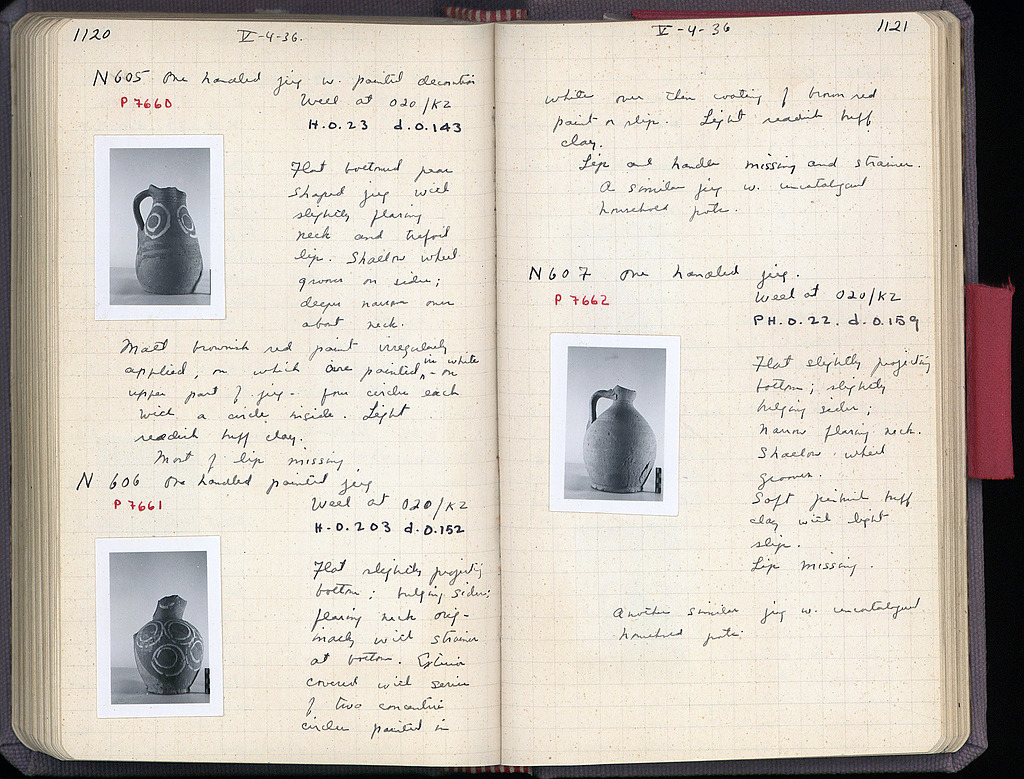 1120
V-4-36.
N 605 One handled jug w. painted decoration
P 7660
Well at 020/KZ
H.0.23 d.0.143
Flat bottomed pear
shaped jug with
slightly flaring
neck and trefoil
lip. Shallow wheel
grooves on sides;
deeper narrow ones
about neck.
Matt brownish red paint irregularly
applied, on which are painted, in white - on
upper part of jug - four circles each
with a circle inside. Light
reddish buff clay.
Most of lip missing
N 606 One handled painted jug
P 7661
Well at 020/KZ
H.0.203 d.0.152
Flat slightly projecting
bottom; bulging sides;
flaring neck orig-
inally with strainer
at bottom. Exterior
covered with series
of two concentric
circles painted in
V-4-36
1121
white over thin coating of brown red
paint or slip. Light reddish buff
clay.
Lip and handle missing and strainer.
A similar jug w. uncatalogued
household pots.
N 607 One handled jug.
P 7662
Well at 020/KZ
PH.0.22. d.0.159
Flat slightly projecting
bottom; slightly
bulging sides;
narrow flaring neck.
Shallow wheel
grooves.
Soft pinkish buff
clay with light
slip.
Lip missing.
Another similar jug w. uncatalogued
household pots.